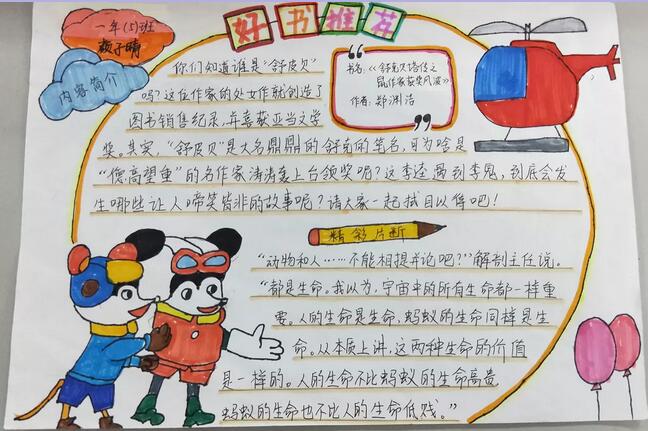 好书推荐
一年(5)班
颜子晴
内容简介
书名:《舒克贝塔传之
鼠作家获奖风波》
作者:郑渊洁
你们知道谁是“舒皮贝”
吗?这位作家的处女作就创造了
图书销售纪录,并喜获亚当文学
奖。其实,“舒皮贝”是大名鼎鼎的舒克的笔名,可为啥是
“德高望重”的名作家涛涛要上台领奖呢?这李逵遇到李鬼,到底会发
生哪些让人啼笑皆非的故事呢?请大家一起拭目以俟吧!
精彩片断
“动物和人……不能相提并论吧?”解剖主任说。
“都是生命。我以为,宇宙中的所有生命都一样重
要。人的生命是生命,蚂蚁的生命同样是生
命。从本质上讲,这两种生命的价值
是一样的。人的生命不比蚂蚁的生命高贵,
蚂蚁的生命也不比人的生命低贱。”